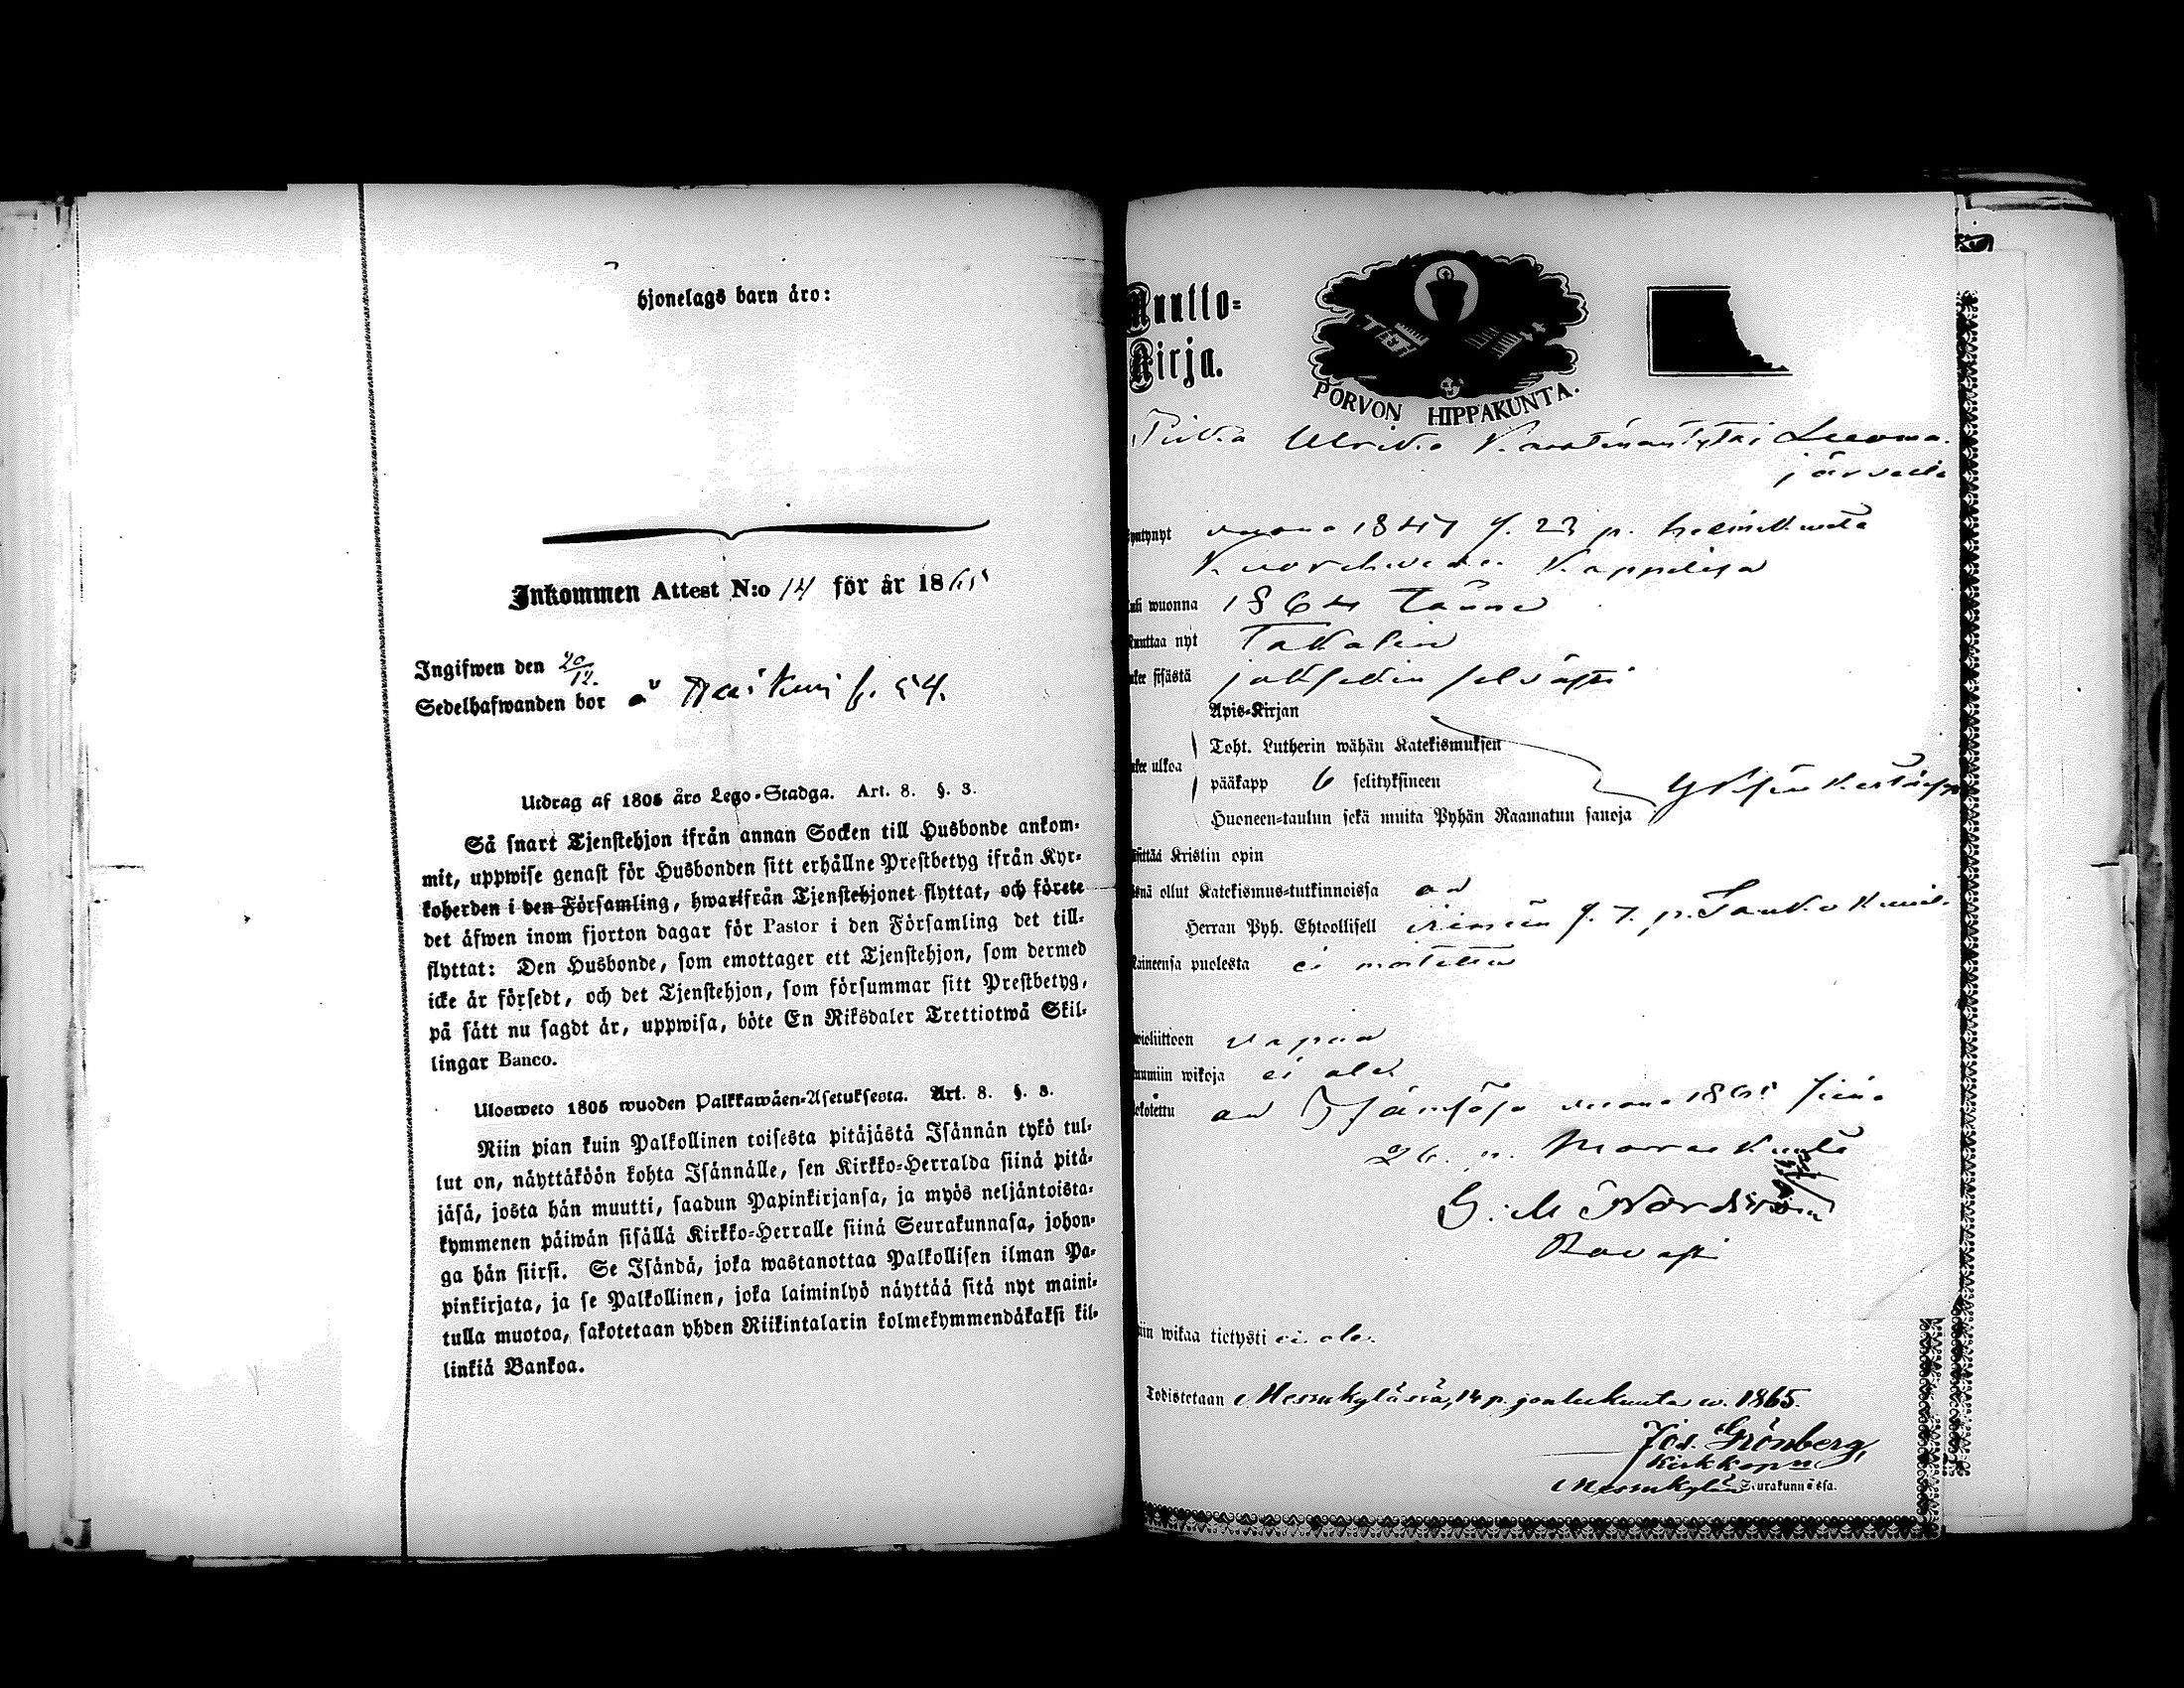 hjonelags barn äro:
Inkommen Attest N:o 14 för år 1865
Ingifwen den 20/12.
Sedelhafwanden bor å f. 54.
Utdrag af 1805 års Lego-Stadga. Art. 8. §. 3.
Så snart Tjenstehjon ifrån annan Socken till Husbonde ankom-
mit, uppwise genast för Husbonden sitt erhållne Prestbetyg ifrån Kyr-
koherden i den Församling, hwarifrån Tjenstehjonet flyttat, och förete
det äfwen inom fjorton dagar för Pastor i den Församling det till-
flyttat: Den Husbonde, som emottager ett Tjenstehjon, som dermed
icke är försedt, och det Tjenstehjon, som försummar sitt Prestbetyg,
på sätt nu sagdt är, uppwisa, böte En Riksdaler Trettiotwå Skil-
lingar Banco.
Ulosweto 1805 wuoden Palkkawäen-Asetuksesta. Art. 8. §. 3.
Niin pian kuin Palkollinen toisesta pitäjästä Isännän tykö tul-
lut on, näyttäköön kohta Isännälle, sen Kirkko-Herralda siinä pitä-
jäsä, josta hän muutti, saadun Papinkirjansa, ja myös neljäntoista-
kymmenen päiwän sisällä Kirkko-Herralle siinä Seurakunnasa, johon-
ga hän siirsi. Se Isändä, joka wastanottaa Palkollisen ilman Pa-
pinkirjata, ja se Palkollinen, joka laiminlyö näyttää sitä nyt maini-
tulla muotoa, sakotetaan yhden Riikintalarin kolmekymmendäkaksi kil-
linkiä Bankoa.
Muutto-
Kirja.
PORVON HIPPAKUNTA.
Piika Ulrika Kustaantytär Leuoma-
järveltä
yntynyt vuona 1847 j. 23 p. helmikuuta
Kuorehveden Kappelisa
uli wuonna 1864 tänne
uuttaa nyt Takasin
ukee sisästä joksekin selvästi
Apis-Kirjan
ukee ulkoa
Toht. Lutherin wähän Katekismuksen
pääkapp 6 selityksineen
Huoneen-taulun sekä muita Pyhän Raamatun sanoja
sittää Kristin opin
snä ollut Katekismus-tutkinnoissa on
Herran Pyh. Ehtoollisell viimein j. 7. p. Toukokuu
aineensa puolesta ei moitittu
wioliittoon vapaa
uumiin wikoja ei ole
okotettu on Jämsäsä vuona 1865 siinä
26. p. Marraskuuta
G. M. Nordström
Rovasti
iin wikaa tietysti ei ole.
Todistetaan Messukylässä, 14 p. joulukuuta w. 1865.
Jos. Grönberg,
Kirkkopn
Messukylän Seurakunnassa.